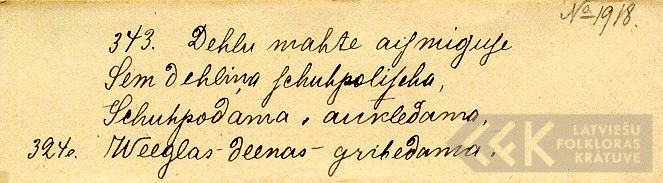 No 1918.
343. Dehlu mahte aismiguse
Sem dehlina schuhpolischa,
Schuhpodama, aukledama,
324. Weeglas deenas gribedama.
LATVIEŠU
FOLKLORAS
KRĀTUVE